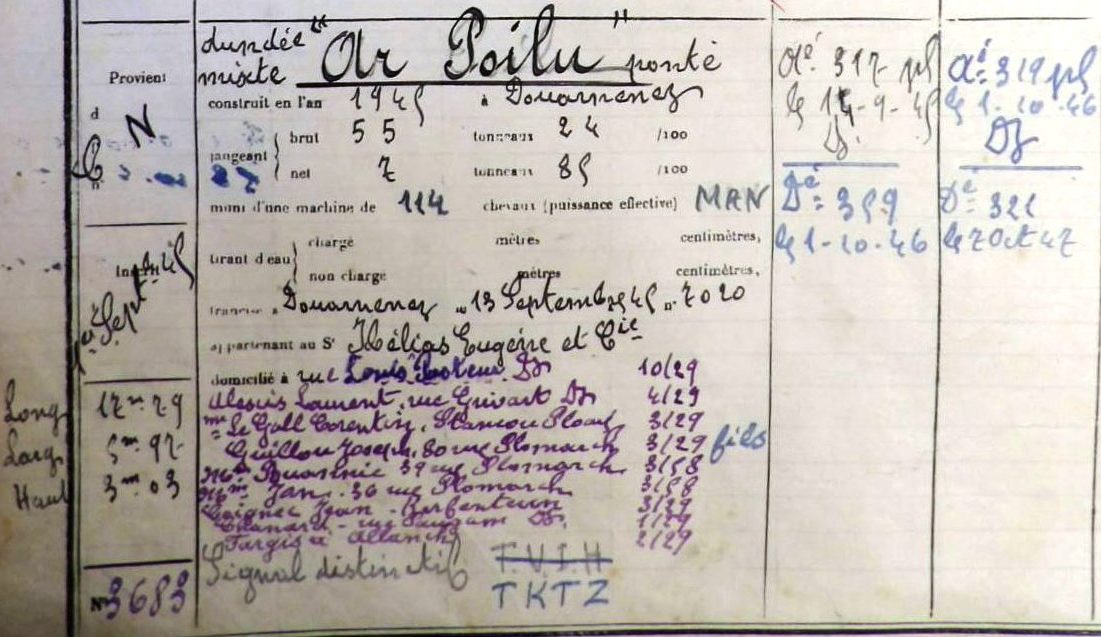 Provient
d
N
n
Long 17m 79
Larg 5m 97
Haut 3m 03
No 3683
dundée "Ar Poilu" ponté
mixte
construit en l'an 1945 à Douarnenez
jaugeant
brut 55 tonneaux 24 /100
net 7 tonneaux 85 /100
muni d'une machine de 114 chevaux (puissance effective) MAN
tirant d'eau
chargé mètres centimètres,
non chargé mètres centimètres,
francisé à Douarnenez le 13 Septembre 45 no 7020
appartenant au Sr Hélias Eugène et Cie
domicilié à rue Louis Pasteur Dz 10/29
Laurent, rue Grivart Dz 4/29
me Le Gall Corentin, Stancou Ploaré 3/29
Guillou Joseph, 80 rue Plomarch 3/29 fils
39 rue Plomarch 3/58
Jan. 36 rue Plomarch 3/58
Jean 3/29
rue Dz. 1/29
à 2/29
Signal distinctif T.V.I.H
TKTZ
Aé = 317 pl
le 14-9-45
Dz
Dé = 359
le 1-10-46
Aé = 319 pl
le 1-10-46
Dz
Dé = 321
le 7 Oct 47